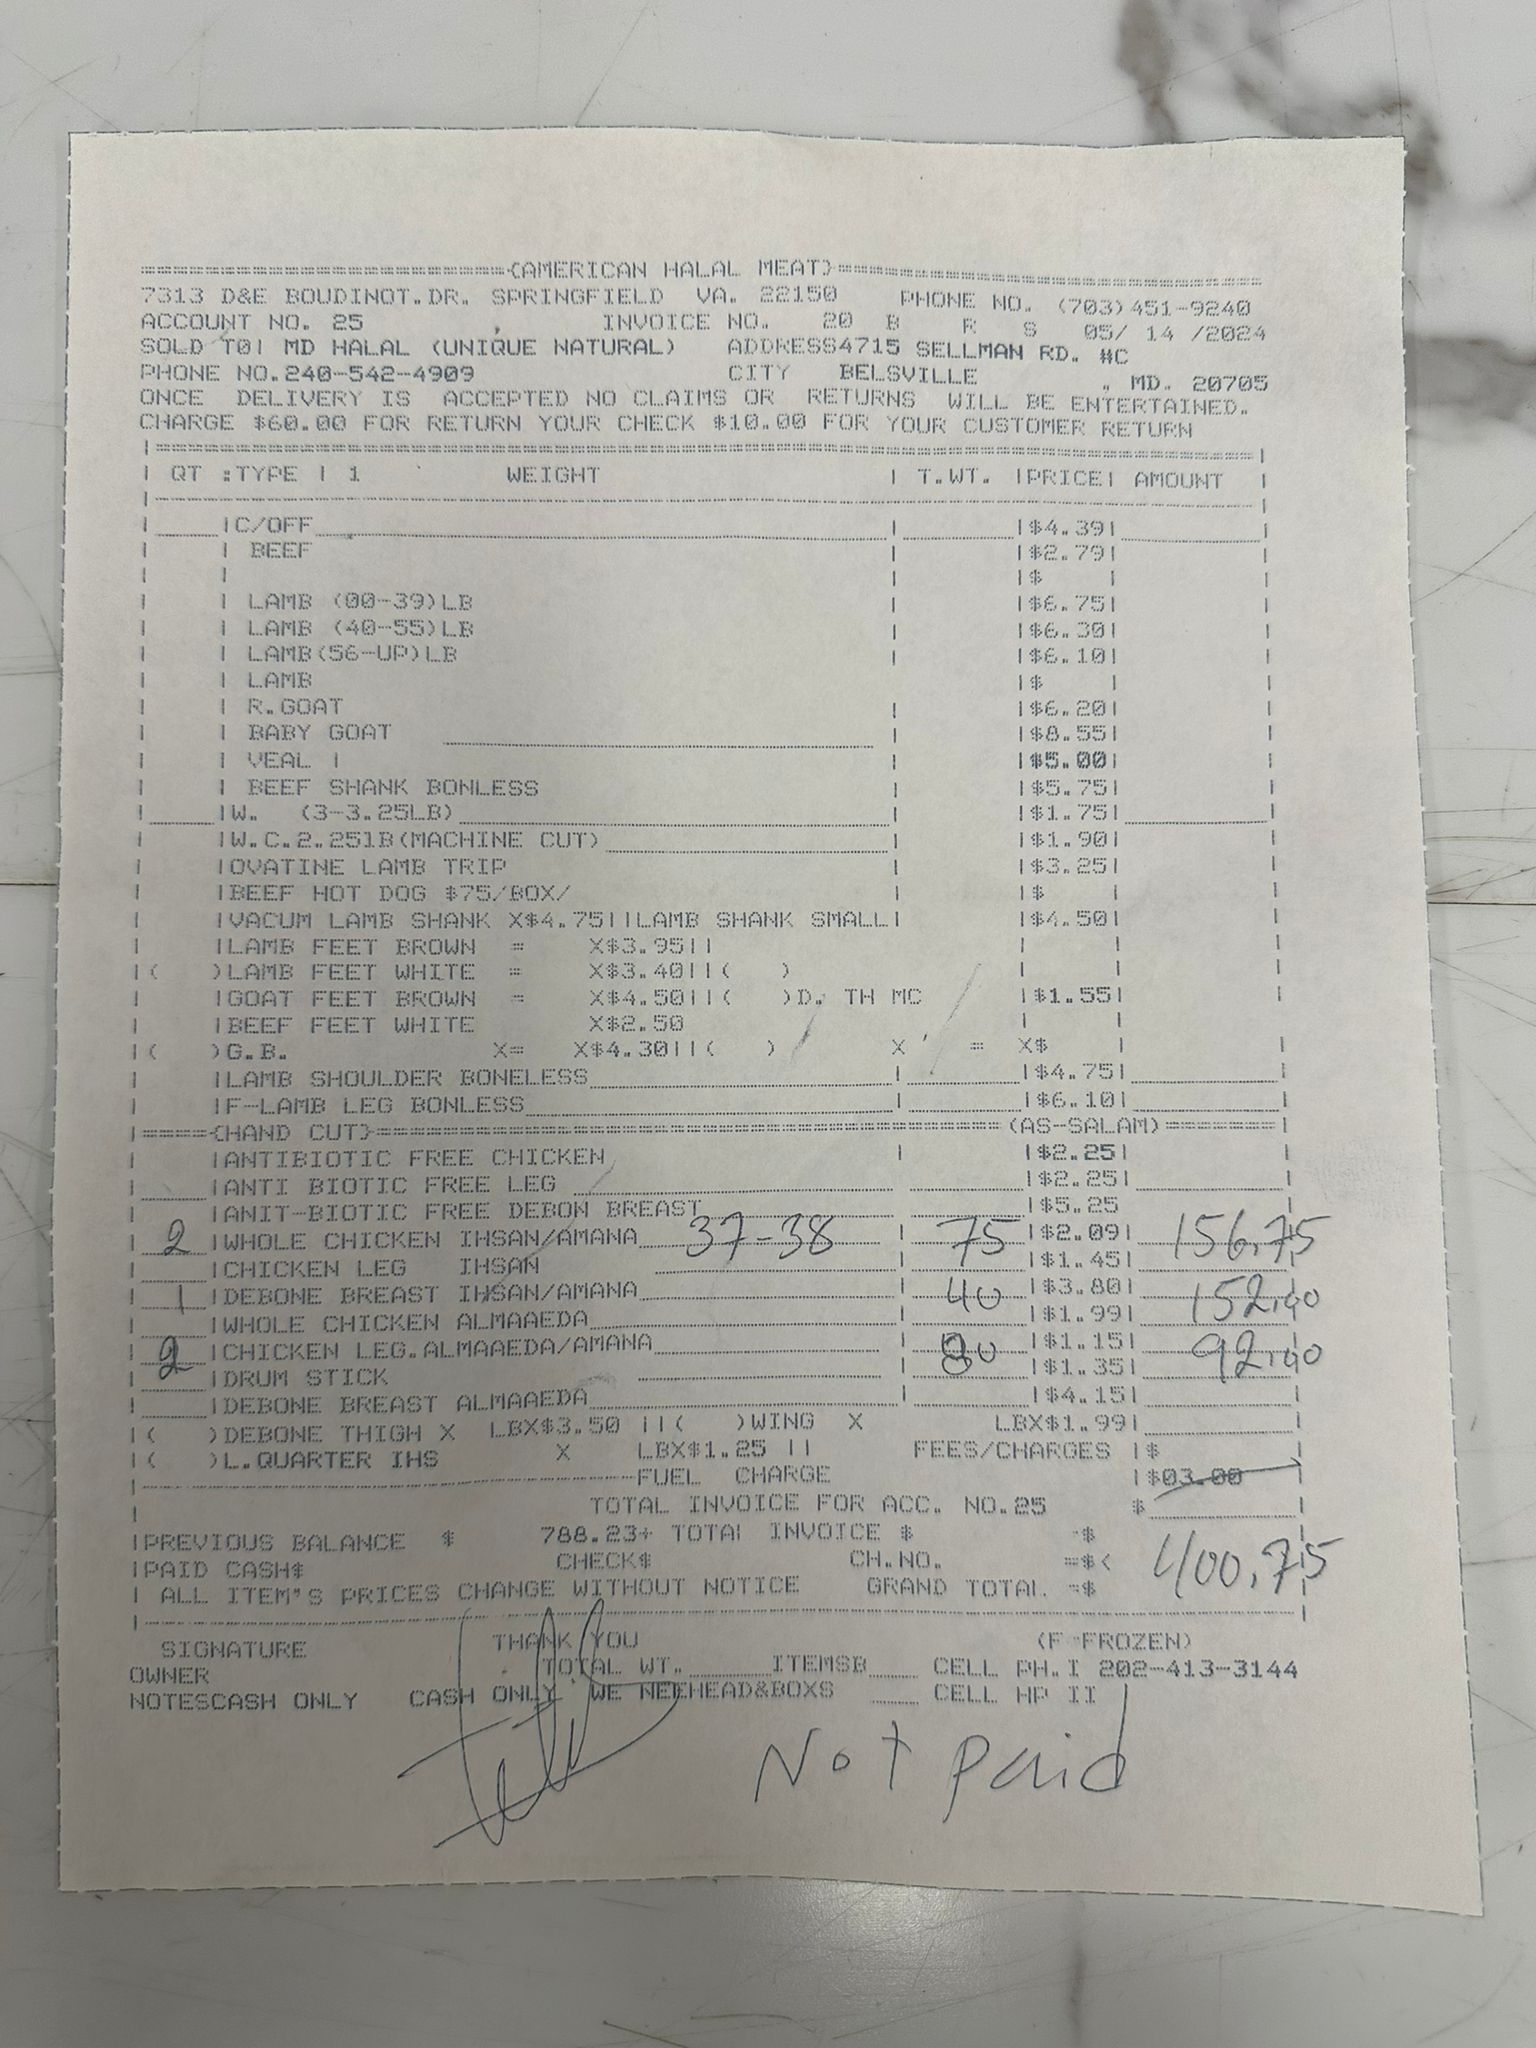 =======================(AMERICAN HALAL MEAT)===========================
7313 D&E BOUDINOT.DR. SPRINGFIELD VA. 22150 PHONE NO. (703)451-9240
ACCOUNT NO. 25 INVOICE NO. 20 B R S 05/ 14 /2024
SOLD TO| MD HALAL (UNIQUE NATURAL) ADDRESS4715 SELLMAN RD. #C
PHONE NO.240-542-4909 CITY BELSVILLE . MD. 20705
ONCE DELIVERY IS ACCEPTED NO CLAIMS OR RETURNS WILL BE ENTERTAINED.
CHARGE $60.00 FOR RETURN YOUR CHECK $10.00 FOR YOUR CUSTOMER RETURN
| QT :TYPE | 1 WEIGHT | T.WT. |PRICE| AMOUNT
|C/OFF |$4.39|
| BEEF |$2.79|
|$ |
| LAMB (00-39)LB |$6.75|
| LAMB (40-55)LB |$6.30|
| LAMB(56-UP)LB |$6.10|
| LAMB |$ |
| R.GOAT |$6.20|
| BABY GOAT |$8.55|
| VEAL | |$5.00|
| BEEF SHANK BONLESS |$5.75|
|W. (3-3.25LB) |$1.75|
|W.C.2.25lB(MACHINE CUT) |$1.90|
|OVATINE LAMB TRIP |$3.25|
|BEEF HOT DOG $75/BOX/ |$ |
|VACUM LAMB SHANK X$4.75||LAMB SHANK SMALL| |$4.50|
|LAMB FEET BROWN = X$3.95||
|( )LAMB FEET WHITE = X$3.40||( )
|GOAT FEET BROWN = X$4.50||( )D. TH MC |$1.55|
|BEEF FEET WHITE X$2.50
|( )G.B. X= X$4.30||( ) X = X$ |
|LAMB SHOULDER BONELESS |$4.75|
|F-LAMB LEG BONLESS |$6.10|
|====(HAND CUT)=======================================(AS-SALAM)=======|
|ANTIBIOTIC FREE CHICKEN |$2.25|
|ANTI BIOTIC FREE LEG |$2.25|
|ANIT-BIOTIC FREE DEBON BREAST |$5.25
2 |WHOLE CHICKEN IHSAN/AMANA 37-38 75 |$2.09| 156.75
|CHICKEN LEG IHSAN |$1.45|
1 |DEBONE BREAST IHSAN/AMANA 40 |$3.80| 152.00
|WHOLE CHICKEN ALMAAEDA |$1.99|
2 |CHICKEN LEG.ALMAAEDA/AMANA 80 |$1.15| 92.00
|DRUM STICK |$1.35|
|DEBONE BREAST ALMAAEDA |$4.15|
|( )DEBONE THIGH X LBX$3.50 ||( )WING X LBX$1.99|
|( )L.QUARTER IHS X LBX$1.25 || FEES/CHARGES |$
FUEL CHARGE |$03.00
TOTAL INVOICE FOR ACC. NO.25 $
|PREVIOUS BALANCE $ 788.23+ TOTAL INVOICE $ =$
|PAID CASH$ CHECK$ CH.NO. =$<
| ALL ITEM'S PRICES CHANGE WITHOUT NOTICE GRAND TOTAL =$ 400.75
SIGNATURE THANK YOU (F-FROZEN)
OWNER TOTAL WT. ITEMSB CELL PH.I 202-413-3144
NOTESCASH ONLY CASH ONLY WE NEEHEAD&BOXS CELL HP II
Not paid